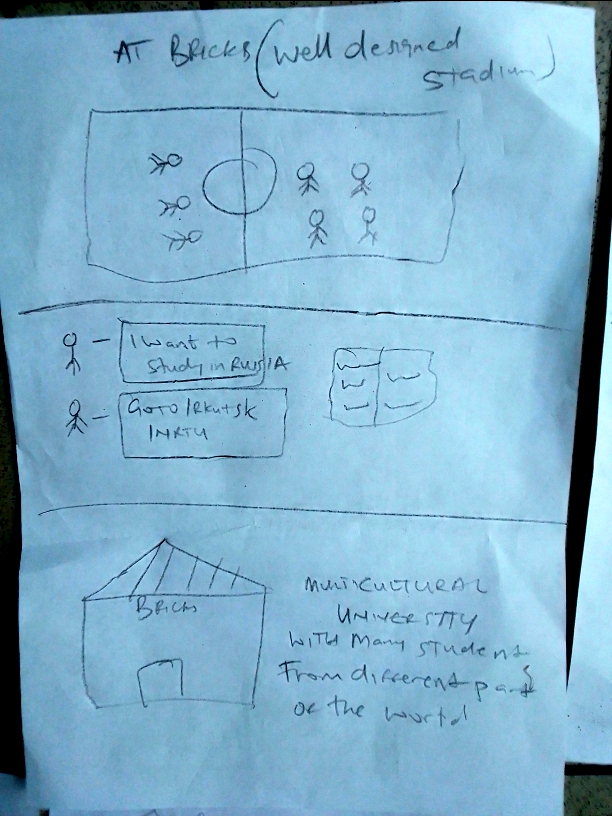 AT BRICKS (well designed
stadium)
I want to
study in RUSSIA
GOTO IRKUTSK
INRTU
BRICKS
MULTICULTURAL
UNIVERSTTY
WITH Many student
From different parts
of the world